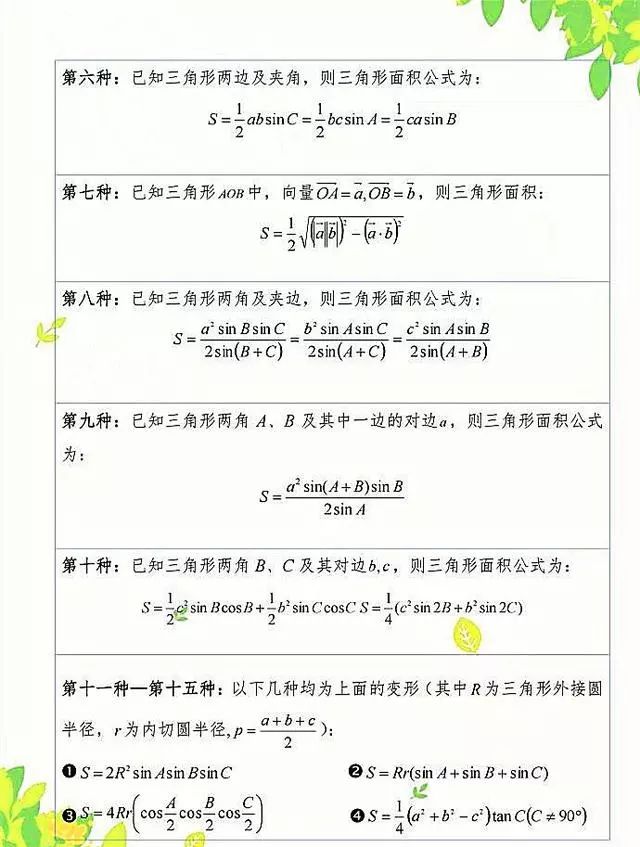 第六种：已知三角形两边及夹角，则三角形面积公式为：
S=\frac{1}{2}ab\sin C=\frac{1}{2}bc\sin A=\frac{1}{2}ca\sin B
第七种：已知三角形AOB中，向量\overrightarrow{OA}=\vec{a},\overrightarrow{OB}=\vec{b}，则三角形面积：
S=\frac{1}{2}\sqrt{(|\vec{a}||\vec{b}|)^2-(\vec{a}\cdot\vec{b})^2}
第八种：已知三角形两角及夹边，则三角形面积公式为：
S=\frac{a^2\sin B\sin C}{2\sin(B+C)}=\frac{b^2\sin A\sin C}{2\sin(A+C)}=\frac{c^2\sin A\sin B}{2\sin(A+B)}
第九种：已知三角形两角 A、B 及其中一边的对边a，则三角形面积公式
为：
S=\frac{a^2\sin(A+B)\sin B}{2\sin A}
第十种：已知三角形两角 B、C 及其对边b,c，则三角形面积公式为：
S=\frac{1}{2}c^2\sin B\cos B+\frac{1}{2}b^2\sin C\cos C S=\frac{1}{4}(c^2\sin 2B+b^2\sin 2C)
第十一种—第十五种：以下几种均为上面的变形（其中R为三角形外接圆
半径，r为内切圆半径,p=\frac{a+b+c}{2}）：
❶S=2R^2\sin A\sin B\sin C ❷S=Rr(\sin A+\sin B+\sin C)
❸S=4Rr(\cos\frac{A}{2}\cos\frac{B}{2}\cos\frac{C}{2}) ❹S=\frac{1}{4}(a^2+b^2-c^2)\tan C(C≠90°)